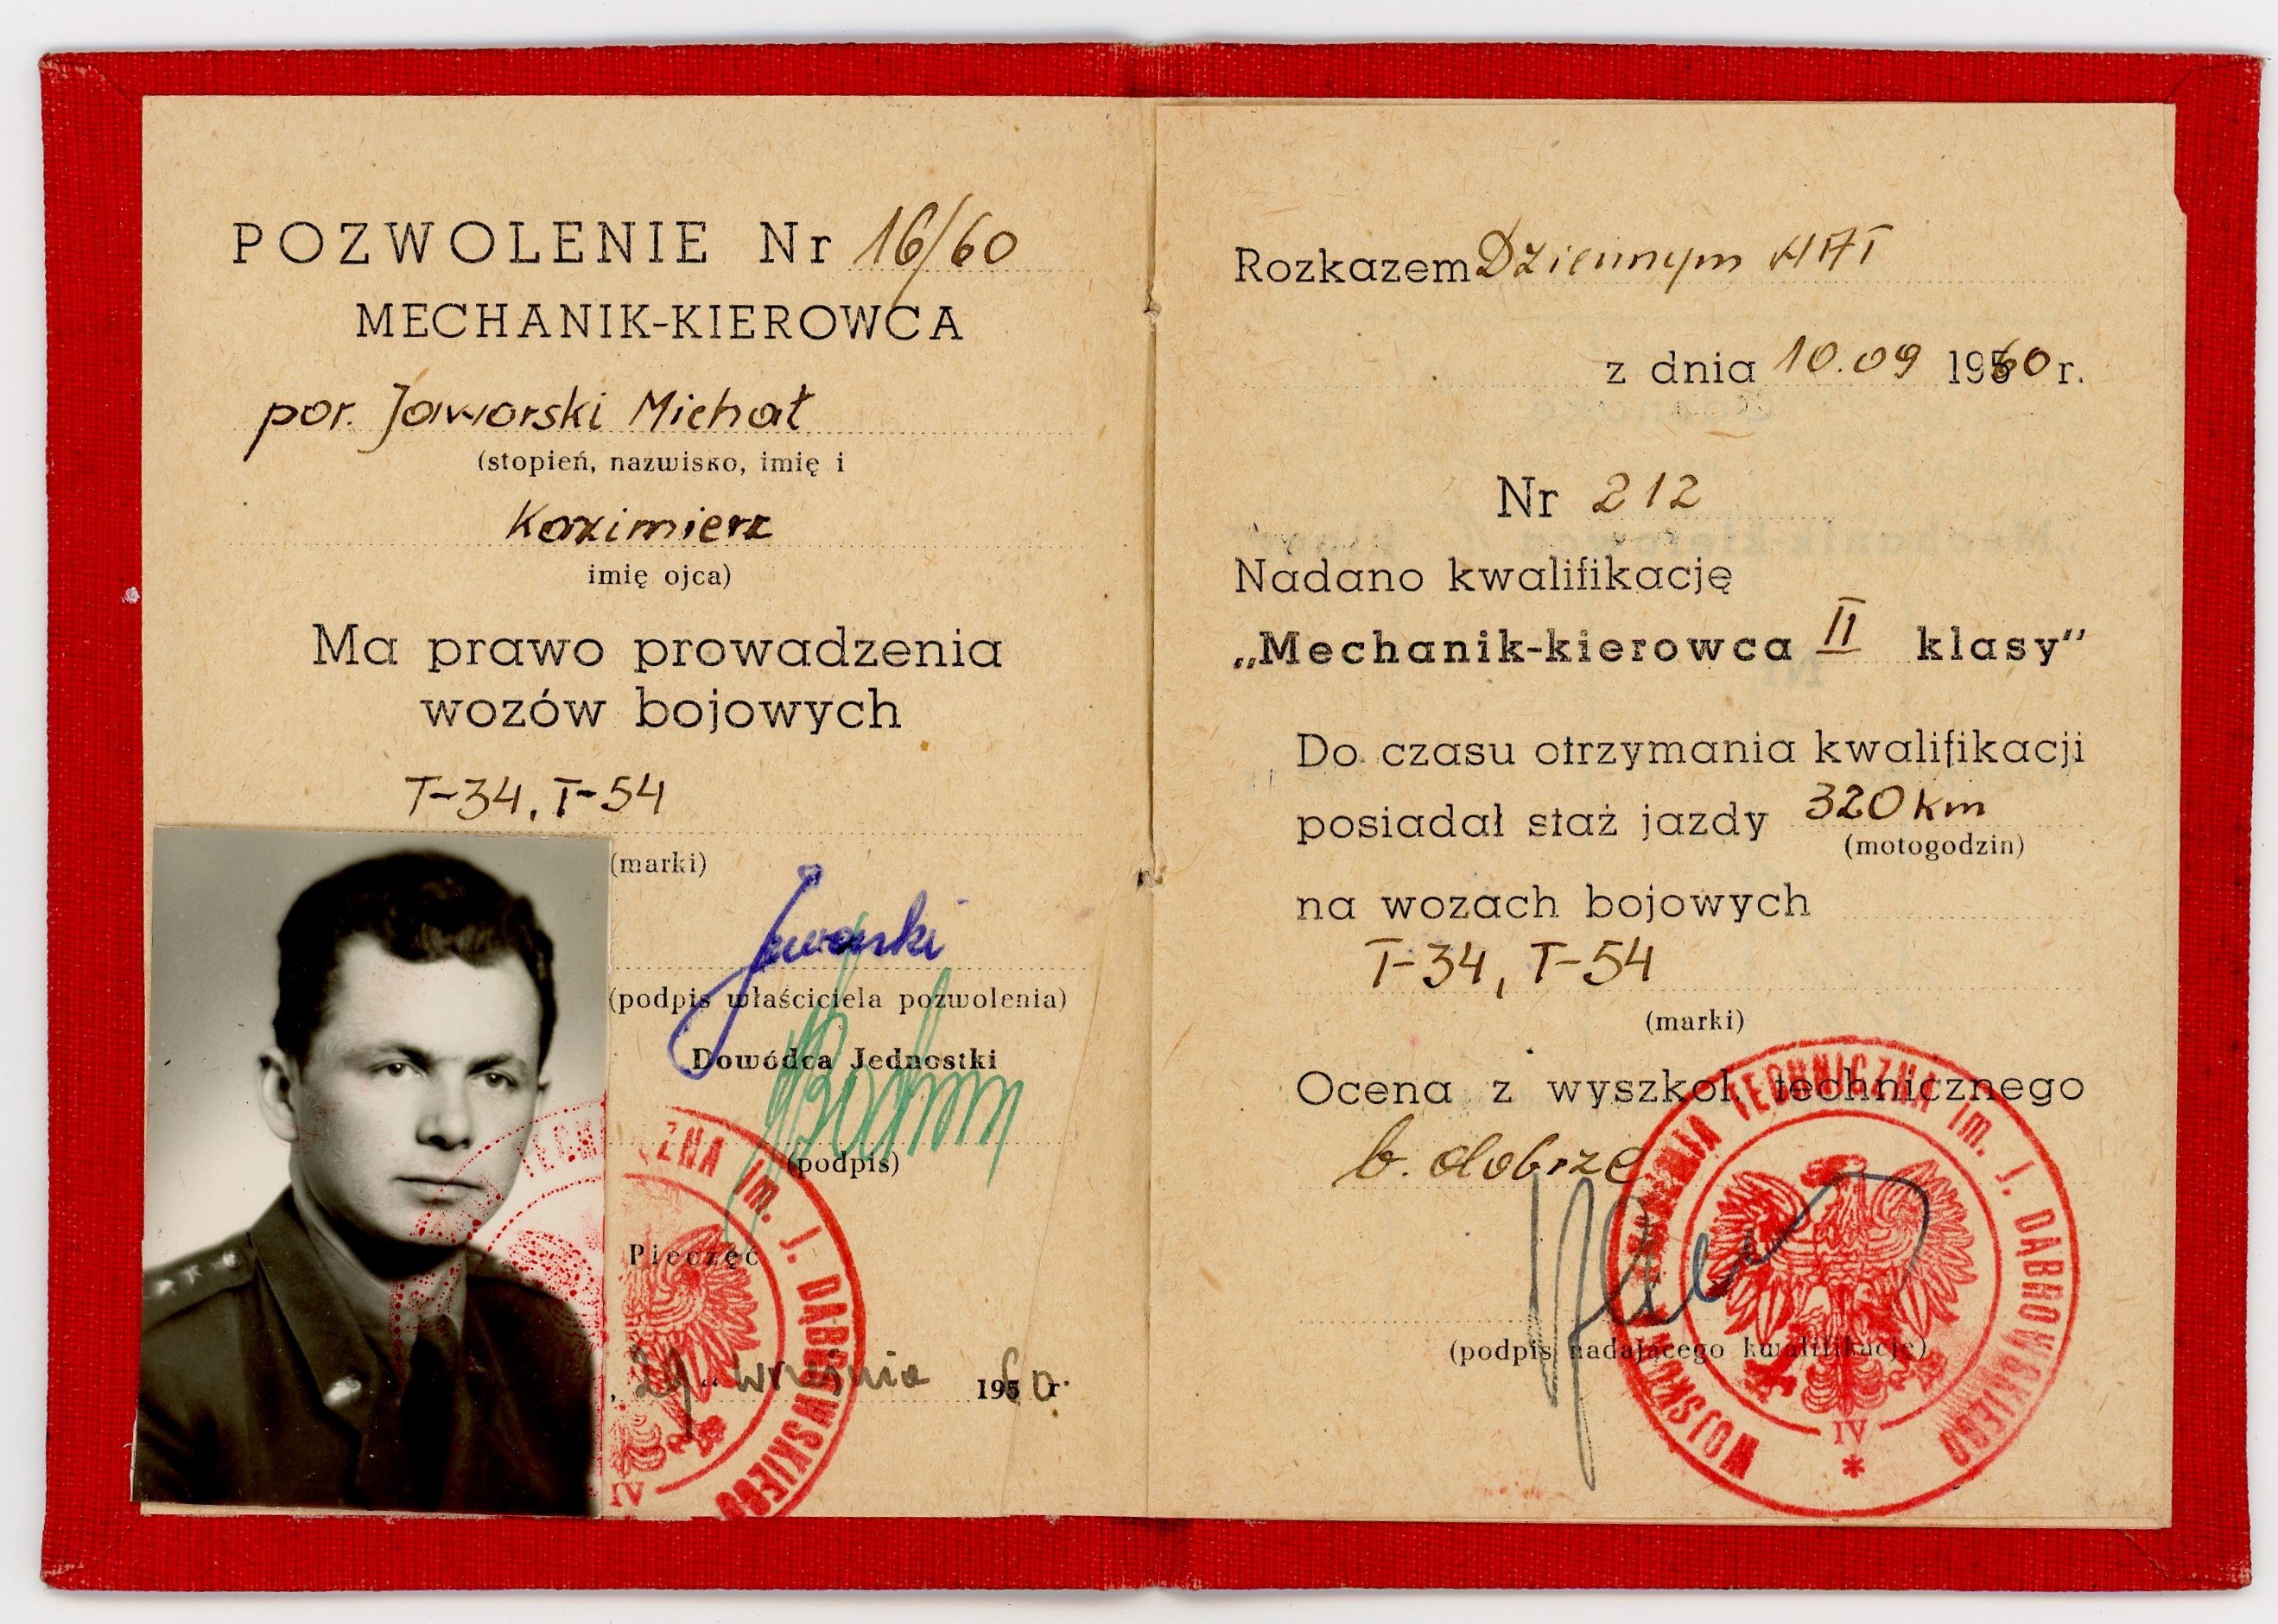 POZWOLENIE Nr 16/60
MECHANIK-KIEROWCA
por. Jaworski Michał
(stopień, nazwisko, imię i
Kazimierz
imię ojca)
Ma prawo prowadzenia
wozów bojowych
T-34, T-54
(marki)
Jaworski
(podpis właściciela pozwolenia)
Dowódca Jednostki
(podpis)
Pieczęć
„29“ września 1960 r.
ZNA im. J. DĄBROWSKIEGO
IV
Rozkazem Dziennym WAT
z dnia 10.09 1960 r.
Nr 212
Nadano kwalifikację
„Mechanik-kierowca II klasy“
Do czasu otrzymania kwalifikacji
posiadał staż jazdy 320 km
(motogodzin)
na wozach bojowych
T-34, T-54
(marki)
Ocena z wyszkol. technicznego
b. dobrze
(podpis nadającego kwalifikację)
WOJSKOWA AKADEMIA TECHNICZNA im. J. DĄBROWSKIEGO
IV
*